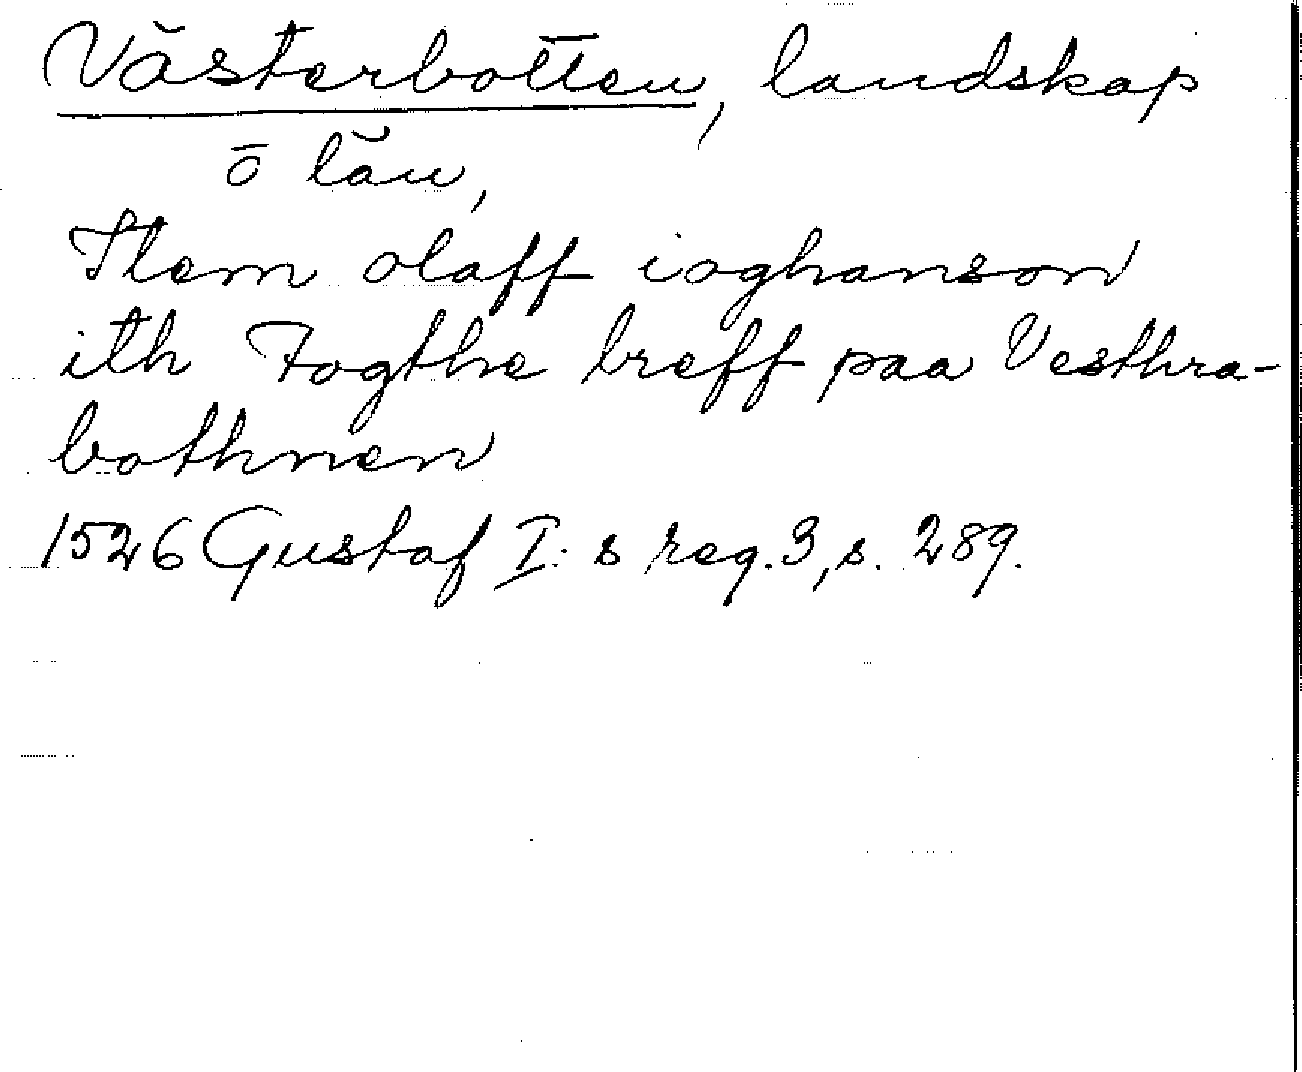 Västerbotten, landskap
ō län,
Item olaff ioghanson
ith Fogthe breff paa Vesthra-
bothnen
1526 Gustaf I: s reg. 3, s. 289.